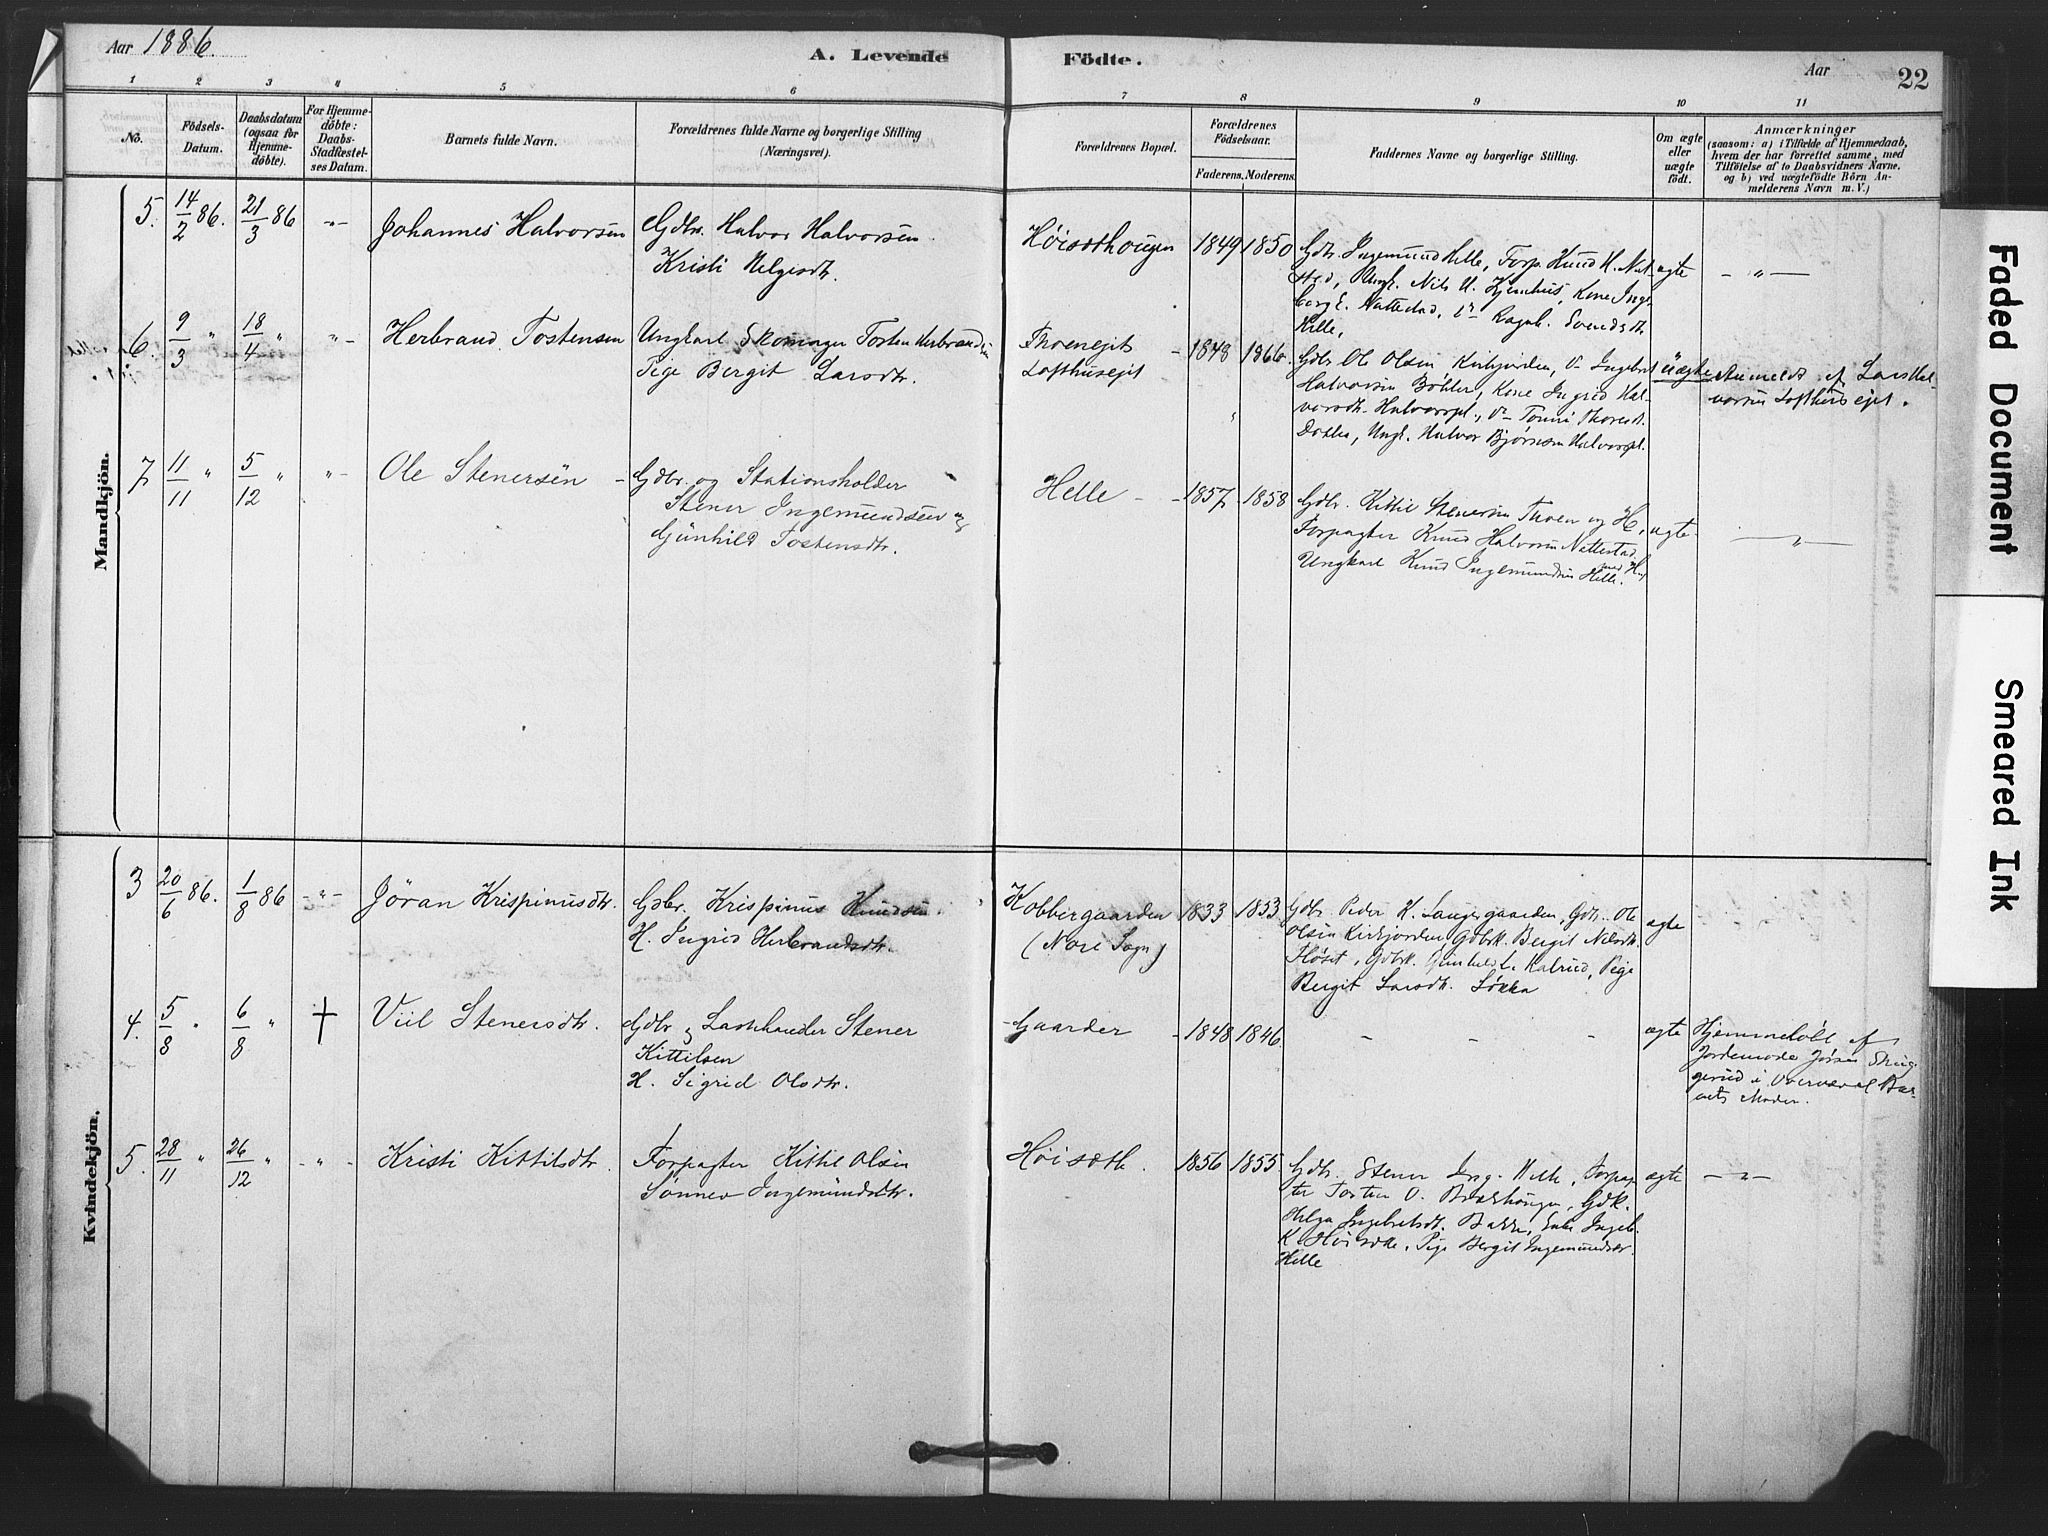 Aar 1886.
A. Levende Födte.
Aar
22
1 2 3 4 5 6 7 8 9 10 11
No.
Födsels-
Datum.
Daabsdatum
(ogsaa for
Hjemme-
döbte).
For Hjemme-
döbte:
Daabs-
Stadfæstel-
ses Datum.
Barnets fulde Navn.
Forældrenes fulde Navne og borgerlige Stilling
(Næringsvei).
Forældrenes Bopæl.
Forældrenes
Födselsaar.
Faderens. Moderens.
Faddernes Navne og borgerlige Stilling.
Om ægte
eller
uægte
födt.
Anmærkninger
(saasom: a) i Tilfælde af Hjemmedaab,
hvem der har forrettet samme, med
Tilföielse af to Daabsvidners Navne,
og b) ved uægtefödte Börn An-
melderens Navn m. V.)
Mandkjön.
5. 14/2 86. 21/3 86 -"-
Johannes Halvorsen
Gdbr. Halvor Halvorsen
Kristi Helgesdtr.
Höisæthougen
1849 1850
Gdbr. Ingemund Helle, Forp. Knud H. Nat-
stad, Ungk. Nils A. Kjemhus, Kone Inge-
borg E. Nattestad, Ragnh. Svendsdtr.
Helle,
ægte
- " -
6. 9/3 " 18/4 " " -
Herbrand Tostensen
Ungkarl Skomager Tosten Herbrandsen
Pige Bergit Larsdtr.
Thoenejet
Lofthusejet
1848 1866.
Gdbr Ole Olsen Kirkjorden, Ingebret
Halvorsen Böhler, Kone Ingrid Hal-
vorsdtr. Halvorspl., Tonni Thoresdt.
Dokka, Ungk. Halvor Björnsen Halvorspl.
üægte
Anmeldt af Lars Hal-
vorsen Lofthusejet.
7 11/11 " 5/12 " " -
Ole Stenersen -
Gdbr. og Stationsholder
Stener Ingemundsen og
Gunhild Tostensdtr.
Helle - - 1857 1858
Gdbr. Kittil Stenersen Thoen og H,
Forpagter Knud Halvorsen Nattestad
med H,
Ungkarl Knud Ingemundsen Helle.
ægte
- " -
Kvindekjön.
3 20/6 86. 1/8 86 -"-
Jöran Krispinusdtr.
Gdbr. Krispinus Knudsen.
H. Ingrid Herbrandsdtr.
Kobbergaarden
(Nore Sogn)
1833 1833
Gdbr. Peder K. Langegaarden, Gdbr. Ole
Olsen Kirkjorden, Gdbrk. Bergit Nilsdtr.
Flöset, Gdbrk. Gunhild Kalrud, Pige
Bergit Larsdtr. Lökka
ægte
4. 5/8 " 6/8 " †
Viil Stenersdtr.
Gdbr og Landhandler Stener
Kittilsen
H. Sigrid Olsdtr.
- Gaarder - 1848 1846.
- - -
ægte
Hjemmedöbt af
Jordemoder Jöran Skrig-
gerud i Overværel Bar-
nets Moder.
5. 28/11 " 26/12 " - " -
Kristi Kittilsdtr.
Forpagter Kittil Olsen
Sönnev Ingemundsdtr.
Höisæth.
1856 1855
Gdbr. Stener Ing. Helle, Forpag-
ter Tosten O. Brækhougen, Gdk.
Helga Ingebretsdt. Bakke, Enke Ingeb.
K. Höisæth, Pige Bergit Ingemundsdtr.
Helle
ægte
- " -
Faded Document
Smeared Ink